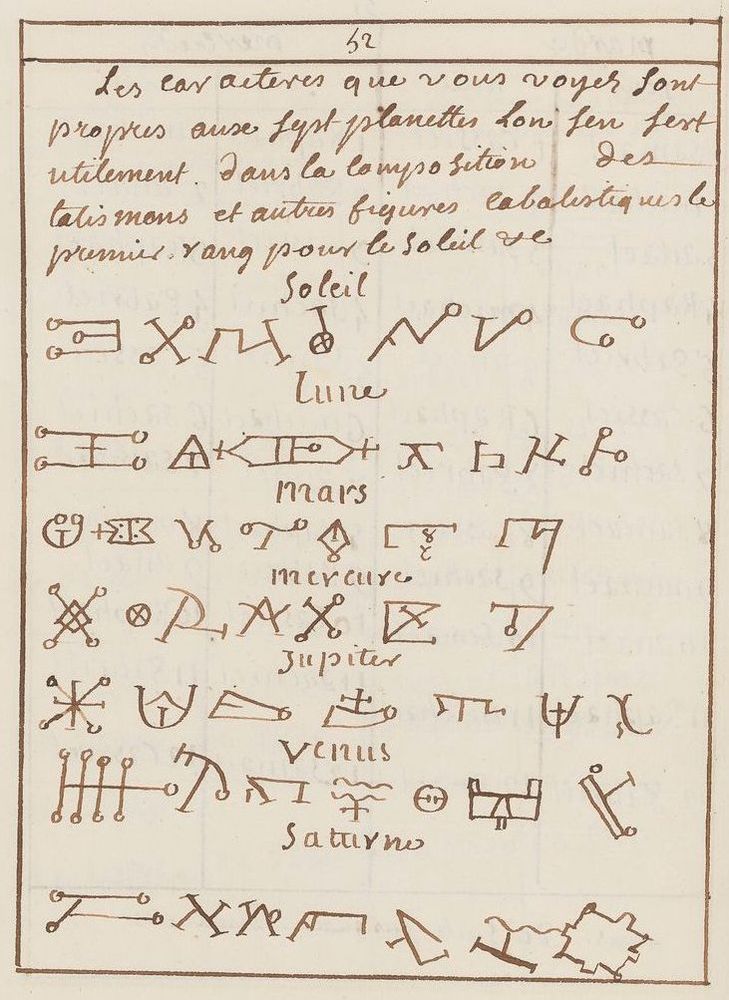 52
Les caracteres que vous voyes sont
propres aux sept planettes Lon sen sert
utilement. dans la Composition des
talismans et autres figures cabalistiques le
premier. rang pour le Soleil &c
Soleil
Lune
Mars
Mercure
Jupiter
Venus
Saturne